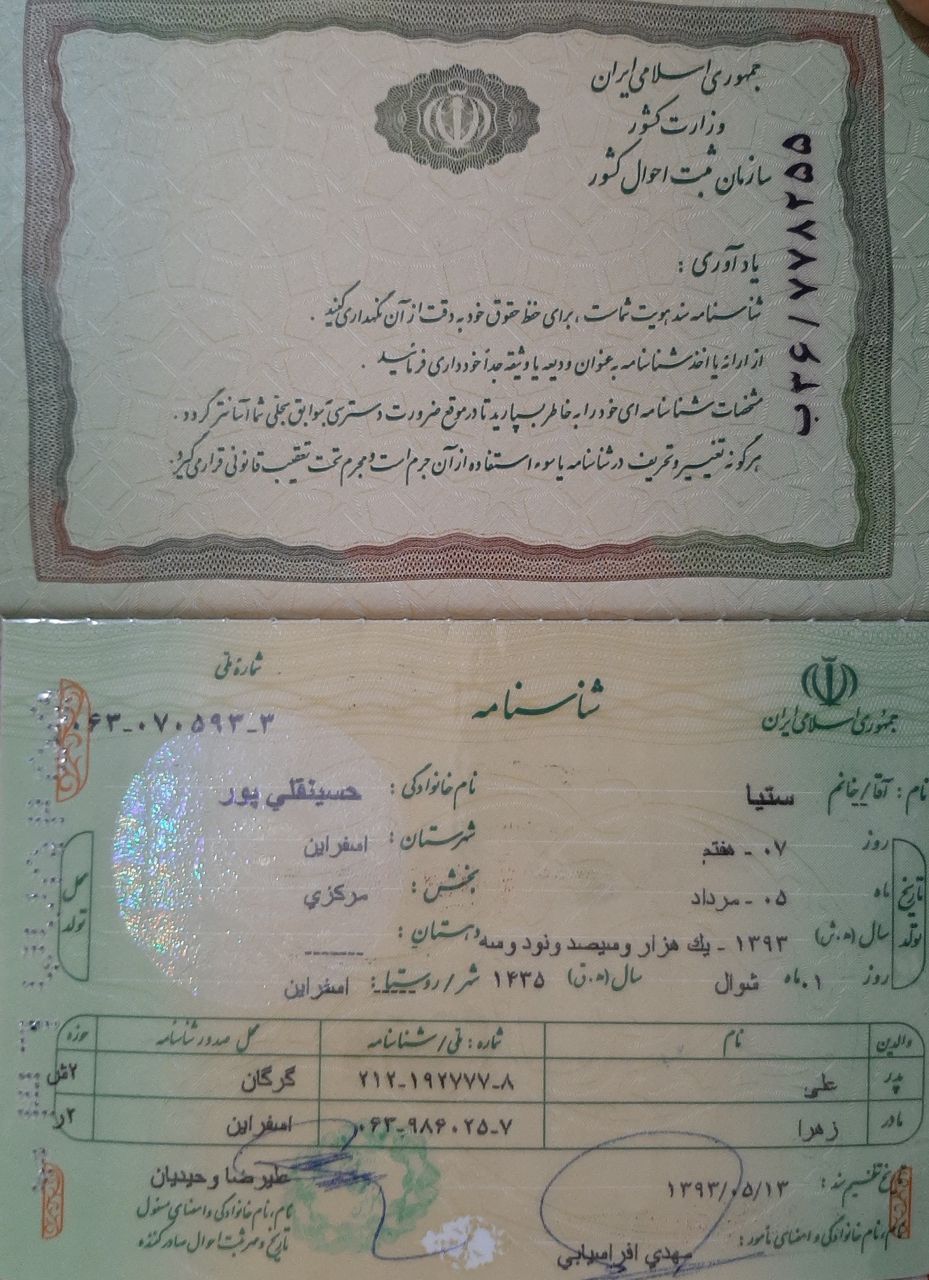 جمهوری اسلامی ایران
وزارت کشور
سازمان ثبت احوال کشور
ب۳۶/۷۷۸۲۵۵
یادآوری :
شناسنامه سند هویت شماست ، برای حفظ حقوق خود به دقت از آن نگهداری کنید .
از ارائه یا اخذ شناسنامه به عنوان ودیعه یا وثیقه جداً خودداری فرمائید .
مشخصات شناسنامه ای خود را به خاطر بسپارید تا در موقع ضرورت دسترسی به سوابق سجلی شما آسانتر گردد .
هرگونه تغییر و تحریف در شناسنامه یا سوء استفاده از آن جرم است و مجرم تحت تعقیب قانونی قرار می گیرد.
جمهوری اسلامی ایران
شناسنامه
شماره ملی
۰۶۳-۰۷۰۵۹۳-۳
نام : آقا/خانم ستیا نام خانوادگی : حسینقلي پور
تاریخ تولد
روز ۰۷ - هفتم شهرستان : اسفراین
ماه ۰۵ - مرداد بخش : مرکزي
سال (ه.ش) ۱۳۹۳ - یك هزار و سیصد و نود و سه دهستان : -------
روز ۰۱ ماه شوال سال (ه.ق) ۱۴۳۵ شهر/روستا : اسفراین
محل تولد
والدین نام شماره : ملی/شناسنامه محل صدور شناسنامه حوزه
پدر علی ۲۱۲-۱۹۲۷۷۷-۸ گرگان ۲ش
مادر زهرا ۰۶۳-۹۸۶۰۲۵-۷ اسفراین ۲ر
تاریخ تنظیم سند : ۱۳۹۳/۰۵/۱۳
نام، نام خانوادگی و امضای مأمور : مهدي افراسیابي
علیرضا وحیدیان
نام، نام خانوادگی و امضای مسئول
تاریخ و مهر ثبت احوال صادرکننده